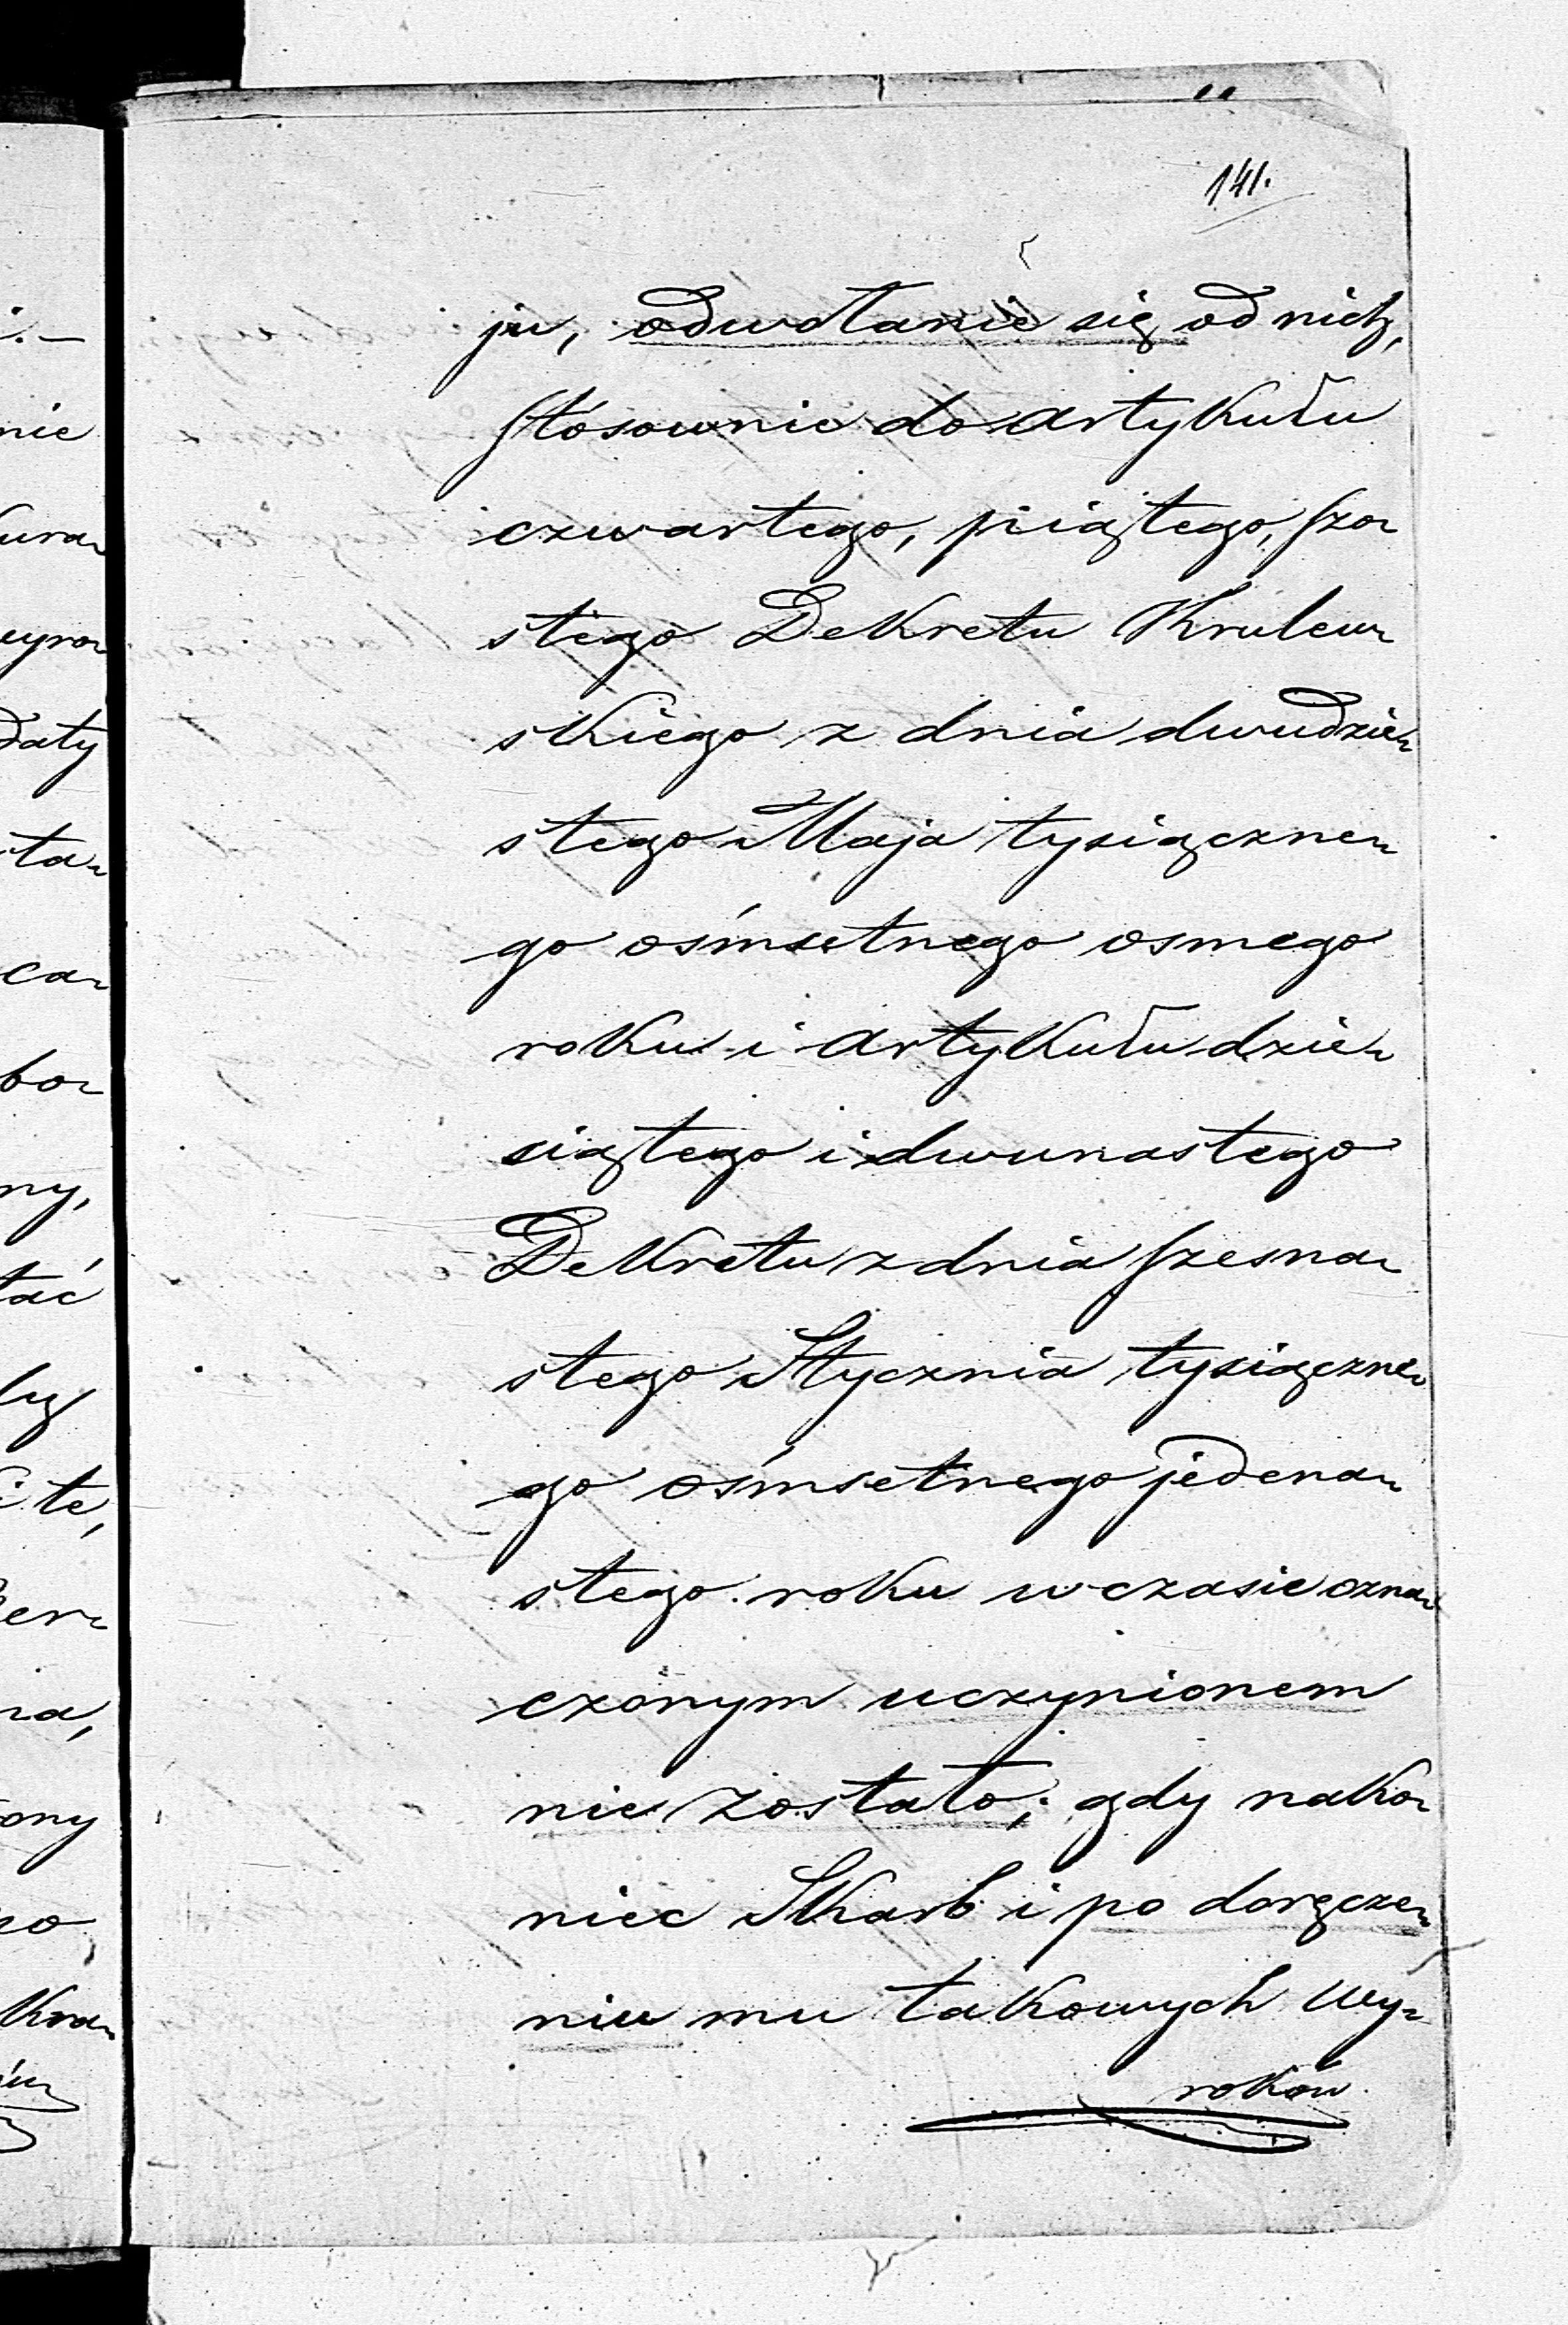 141.
ju, odwołanie się od nich,
stósownie do artykułu
czwartego, piątego, szo-
stego Dekretu Krulew-
skiego z dnia dwudzie-
stego Maja tysiączne-
go ośmsetnego osmego
roku i artykułu dzie-
siątego i dwunastego
Dekretu z dnia szesna-
stego Stycznia tysiączne-
go ośmsetnego jedena-
stego roku w czasie ozna-
czonym uczynionem
nie zostało; gdy nako-
niec Skarb i po doręcze-
niu mu takowych wy-
roków